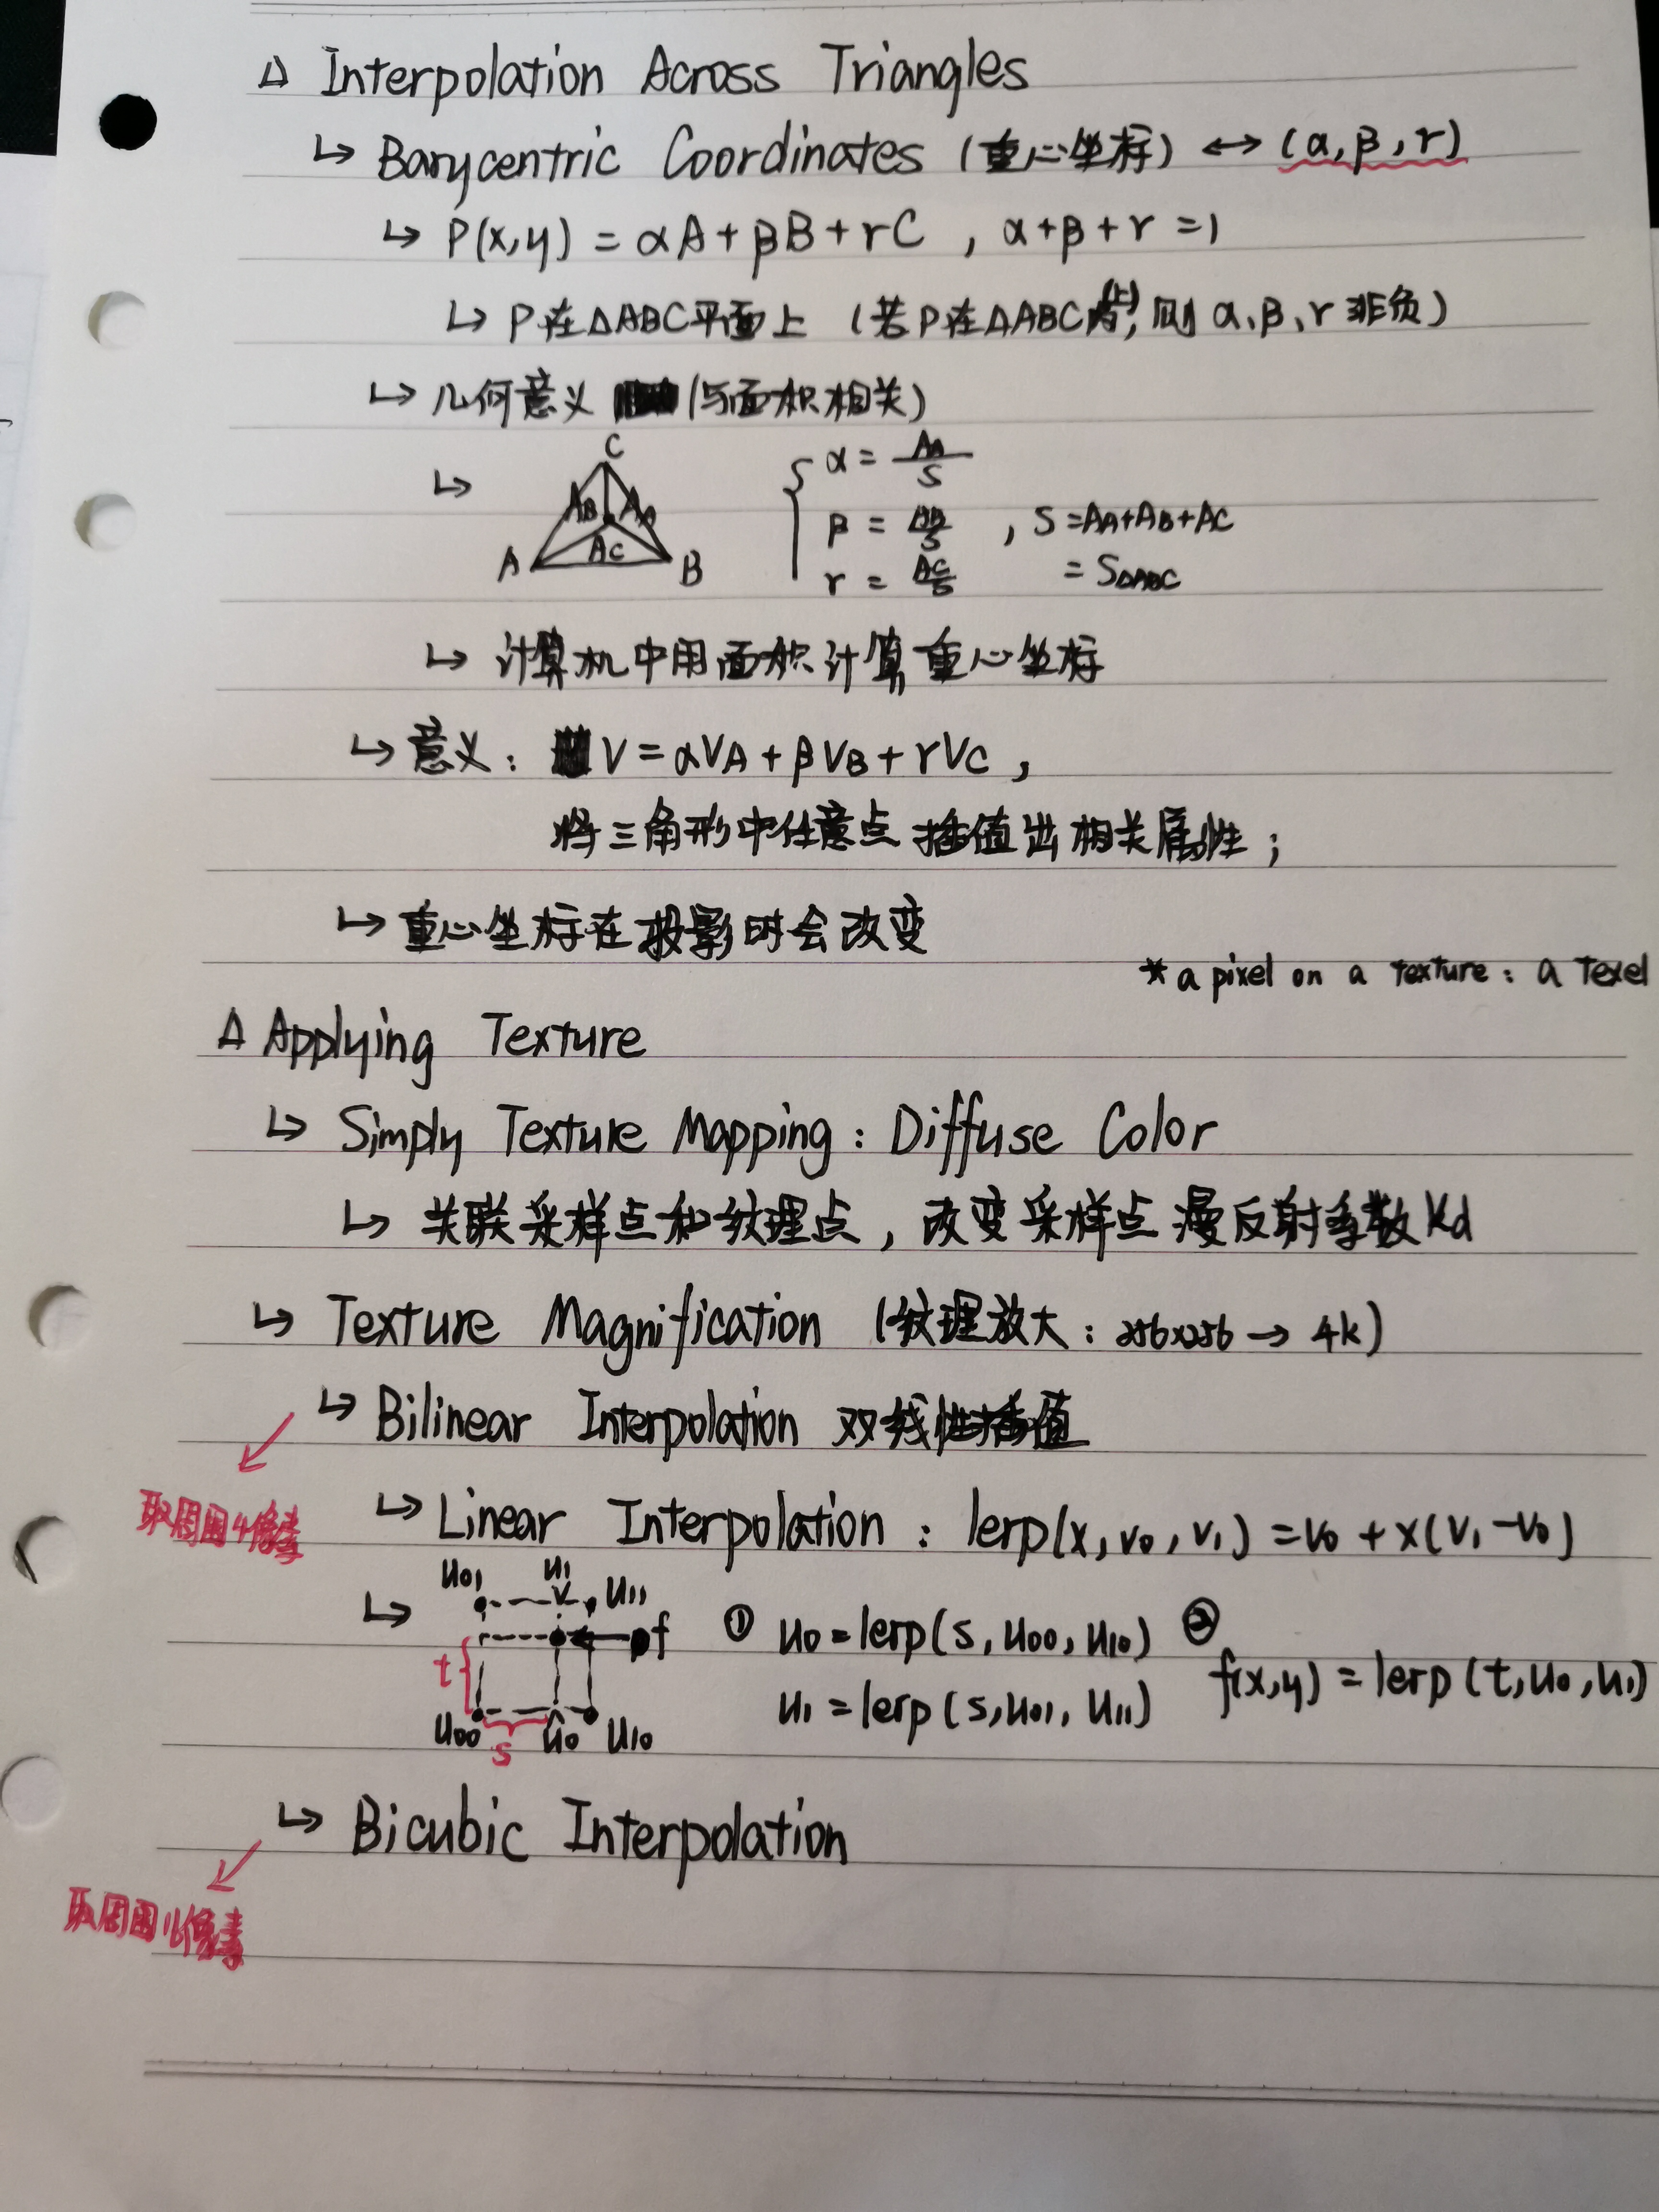 △ Interpolation Across Triangles
↳ Barycentric Coordinates (重心坐标) ↔ (α, β, γ)
↳ P(x,y) = αA + βB + γC , α+β+γ =1
↳ P在△ABC平面上 (若P在△ABC内(上), 则 α、β、γ 非负)
↳ 几何意义 (与面积相关)
↳ C A_B A_A A_C A B
α = A_A/S
β = A_B/S , S = A_A+A_B+A_C
γ = A_C/S = S△ABC
↳ 计算机中用面积计算重心坐标
↳ 意义: V = αV_A + βV_B + γV_C ,
将三角形中任意点插值出相关属性;
↳ 重心坐标在投影时会改变
* a pixel on a texture: a texel
△ Applying Texture
↳ Simply Texture Mapping: Diffuse Color
↳ 关联采样点和纹理点, 改变采样点漫反射系数Kd
↳ Texture Magnification (纹理放大: 256x256 → 4k)
↳ Bilinear Interpolation 双线性插值
取周围4像素
↳ Linear Interpolation: lerp(x, v0, v1) = v0 + x(v1-v0)
↳ u01 u1 u11 f t u00 s u0 u10
① u0 = lerp(s, u00, u10)
u1 = lerp(s, u01, u11)
② f(x,y) = lerp(t, u0, u1)
↳ Bicubic Interpolation
取周围16像素